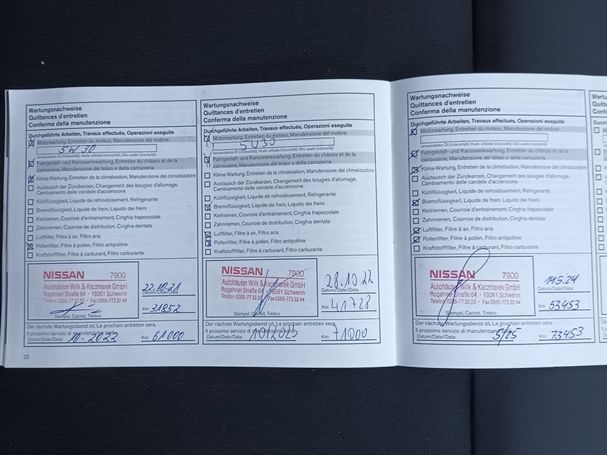 Wartungsnachweise
Quittances d'entretien
Conferma della manutenzione
Durchgeführte Arbeiten, Travaux effectués, Operazioni eseguite
Motorwartung, Entretien du moteur, Manutenzione del motore
5W30
Fahrgestell- und Karosseriewartung, Entretien du châssis et de la
carrosserie, Manutenzione del telaio e della carrozzeria
Klima-Wartung, Entretien de la climatisation, Manutenzione del climatizzatore
Austausch der Zündkerzen, Changement des bougies d'allumage,
Cambiamento delle candele d'accensione
Kühlflüssigkeit, Liquide de refroidissement, Refrigerante
Bremsflüssigkeit, Liquide de frein, Liquido dei freni
Keilriemen, Courroie d'entraînement, Cinghia trapezoidale
Zahnriemen, Courroie de distribution, Cinghia dentata
Luftfilter, Filtre à air, Filtro aria
Pollenfilter, Filtre à pollen, Filtro antipolline
Kraftstofffilter, Filtre à carburant, Filtro carburante
NISSAN 7900
Autohäuser Wilk & Kaczmarek GmbH
Rogahner Straße 64 • 19061 Schwerin
Telefon 0385-77 33 20 • Fax 0385-773 32 44
Stempel, Cachet, Timbro
22.10.21
Datum/Date/Data:
Km: 31852
Der nächste Wartungsdienst ist, Le prochain entretien sera,
Il prossimo servizio di manutenzione sarà
Datum/Date/Data: 10-2022 Km: 61000
22
Wartungsnachweise
Quittances d'entretien
Conferma della manutenzione
Durchgeführte Arbeiten, Travaux effectués, Operazioni eseguite
Motorwartung, Entretien du moteur, Manutenzione del motore
5W30
Fahrgestell- und Karosseriewartung, Entretien du châssis et de la
carrosserie, Manutenzione del telaio e della carrozzeria
Klima-Wartung, Entretien de la climatisation, Manutenzione del climatizzatore
Austausch der Zündkerzen, Changement des bougies d'allumage,
Cambiamento delle candele d'accensione
Kühlflüssigkeit, Liquide de refroidissement, Refrigerante
Bremsflüssigkeit, Liquide de frein, Liquido dei freni
Keilriemen, Courroie d'entraînement, Cinghia trapezoidale
Zahnriemen, Courroie de distribution, Cinghia dentata
Luftfilter, Filtre à air, Filtro aria
Pollenfilter, Filtre à pollen, Filtro antipolline
Kraftstofffilter, Filtre à carburant, Filtro carburante
NISSAN 7900
Autohäuser Wilk & Kaczmarek GmbH
Rogahner Straße 64 • 19061 Schwerin
Telefon 0385-77 33 20 • Fax 0385-773 32 44
Stempel, Cachet, Timbro
28.10.22
Datum/Date/Data:
Km: 41728
Der nächste Wartungsdienst ist, Le prochain entretien sera,
Il prossimo servizio di manutenzione sarà
Datum/Date/Data: 10/2023 Km: 71000
Wartungsnachweise
Quittances d'entretien
Conferma della manutenzione
Durchgeführte Arbeiten, Travaux effectués, Operazioni eseguite
Motorwartung, Entretien du moteur, Manutenzione del motore
Fahrgestell- und Karosseriewartung, Entretien du châssis et de la
carrosserie, Manutenzione del telaio e della carrozzeria
Klima-Wartung, Entretien de la climatisation, Manutenzione del climatizzatore
Austausch der Zündkerzen, Changement des bougies d'allumage,
Cambiamento delle candele d'accensione
Kühlflüssigkeit, Liquide de refroidissement, Refrigerante
Bremsflüssigkeit, Liquide de frein, Liquido dei freni
Keilriemen, Courroie d'entraînement, Cinghia trapezoidale
Zahnriemen, Courroie de distribution, Cinghia dentata
Luftfilter, Filtre à air, Filtro aria
Pollenfilter, Filtre à pollen, Filtro antipolline
Kraftstofffilter, Filtre à carburant, Filtro carburante
NISSAN 7900
Autohäuser Wilk & Kaczmarek GmbH
Rogahner Straße 64 • 19061 Schwerin
Telefon 0385-77 33 20 • Fax 0385-773 32 44
Stempel, Cachet, Timbro
Datum/Date/Data:
Km: 53453
Der nächste Wartungsdienst ist, Le prochain entretien sera,
Il prossimo servizio di manutenzione sarà
Datum/Date/Data: 5/25 Km: 73453